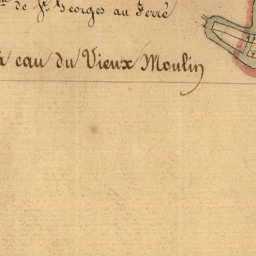 de St. Georges au Ferré
à eau du Vieux Moulin